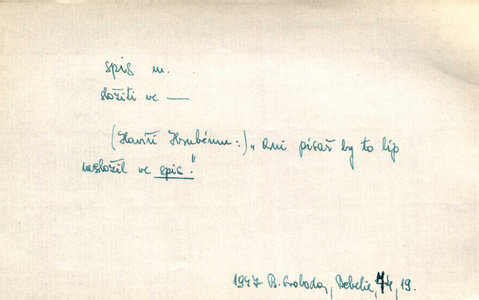 spis m.
složiti ve —
(Havši Hrubému:) „ Ani písař by to líp
nesložil ve spis."
1947 B. Svoboda, Rebelie, 74, 19.